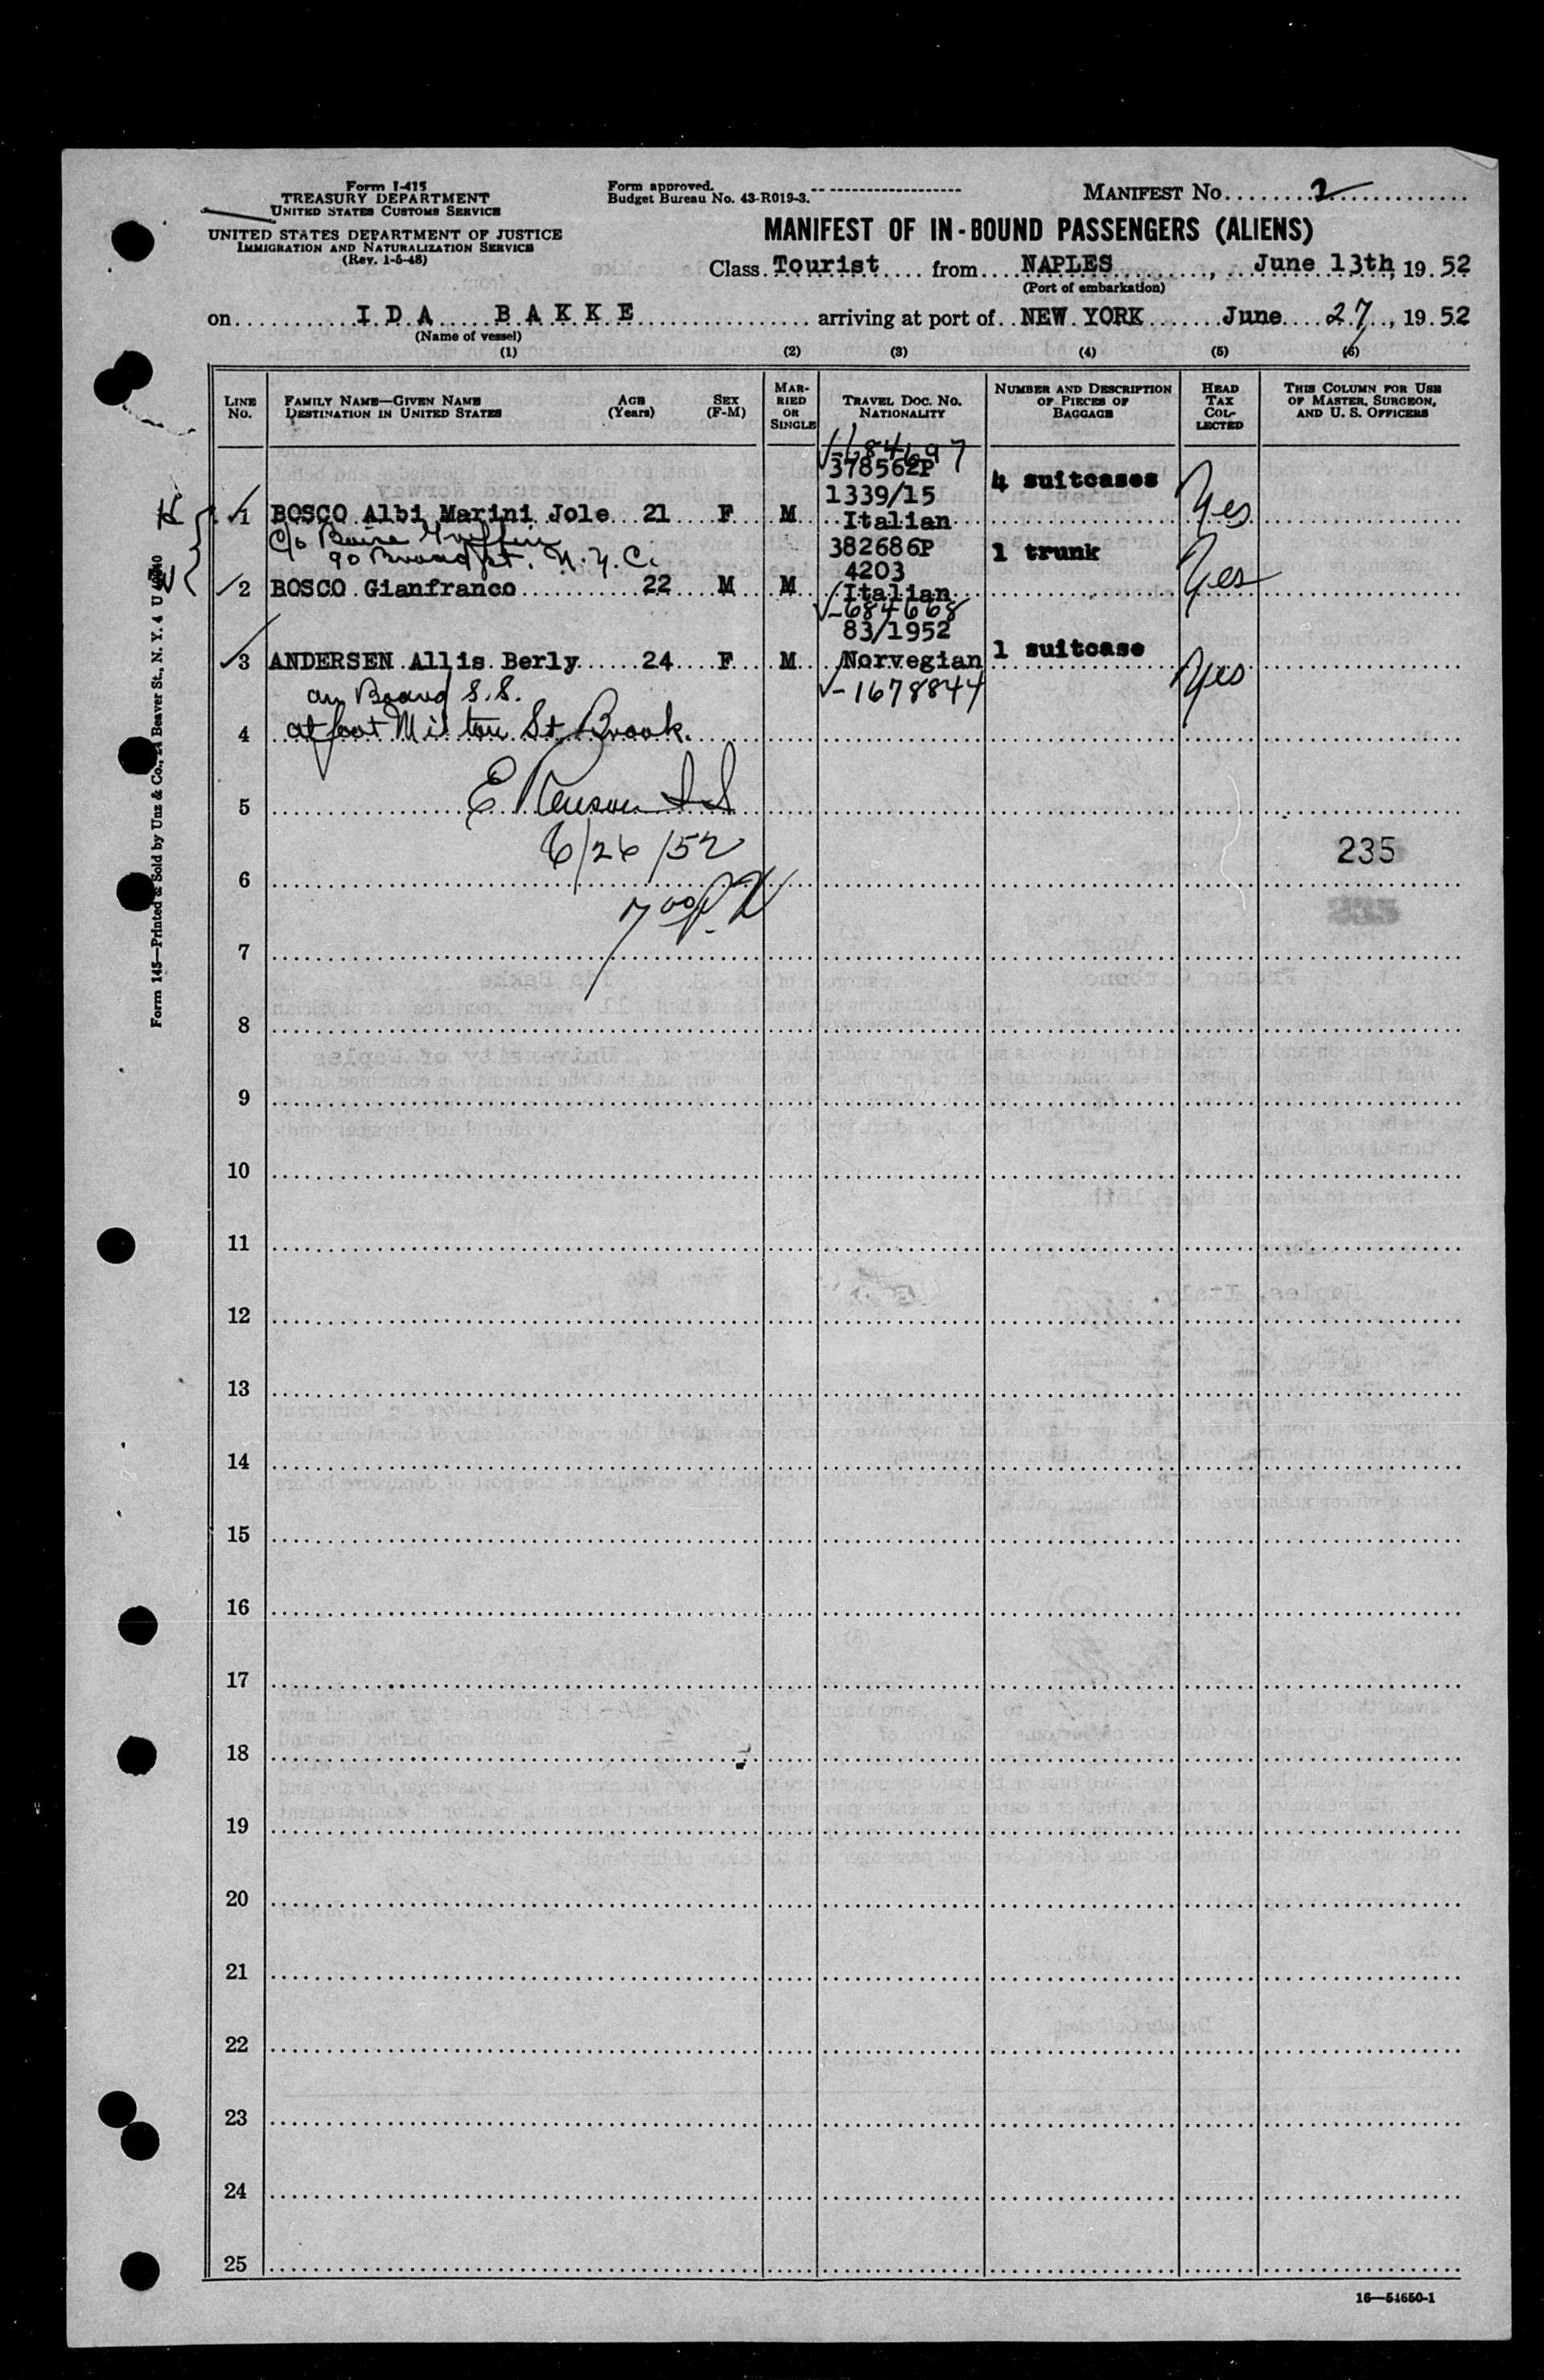 Form I-415
TREASURY DEPARTMENT
UNITED STATES CUSTOMS SERVICE
UNITED STATES DEPARTMENT OF JUSTICE
IMMIGRATION AND NATURALIZATION SERVICE
(Rev. 1-5-48)
Form approved.
Budget Bureau No. 43-R019-3.
MANIFEST No. 2
MANIFEST OF IN-BOUND PASSENGERS (ALIENS)
Class Tourist from NAPLES, June 13th, 19 52
(Port of embarkation)
on IDA BAKKE arriving at port of NEW YORK June 27, 19 52
(Name of vessel)
(1) (2) (3) (4) (5) (6)
LINE No. FAMILY NAME—GIVEN NAME DESTINATION IN UNITED STATES AGE (Years) SEX (F-M) MARRIED OR SINGLE TRAVEL DOC. NO. NATIONALITY NUMBER AND DESCRIPTION OF PIECES OF BAGGAGE HEAD TAX COLLECTED THIS COLUMN FOR USE OF MASTER, SURGEON, AND U. S. OFFICERS
684697
378562P
1339/15 4 suitcases
1 BOSCO Albi Marini Jole 21 F M Italian Yes
c/o
90 Broad St. N.Y.C. 382686P 1 trunk
4203
2 BOSCO Gianfranco 22 M M Italian Yes
684668
83/1952
3 ANDERSEN Allis Berly 24 F M Norvegian 1 suitcase Yes
on Board S.S. 1678844
4 at foot Milton St. Brook.
5 E
6/26/52 235
6
7 00 P.M
7
8
9
10
11
12
13
14
15
16
17
18
19
20
21
22
23
24
25
16—54650-1
Form 145—Printed & Sold by Unz & Co., Beaver St., N. Y. 4